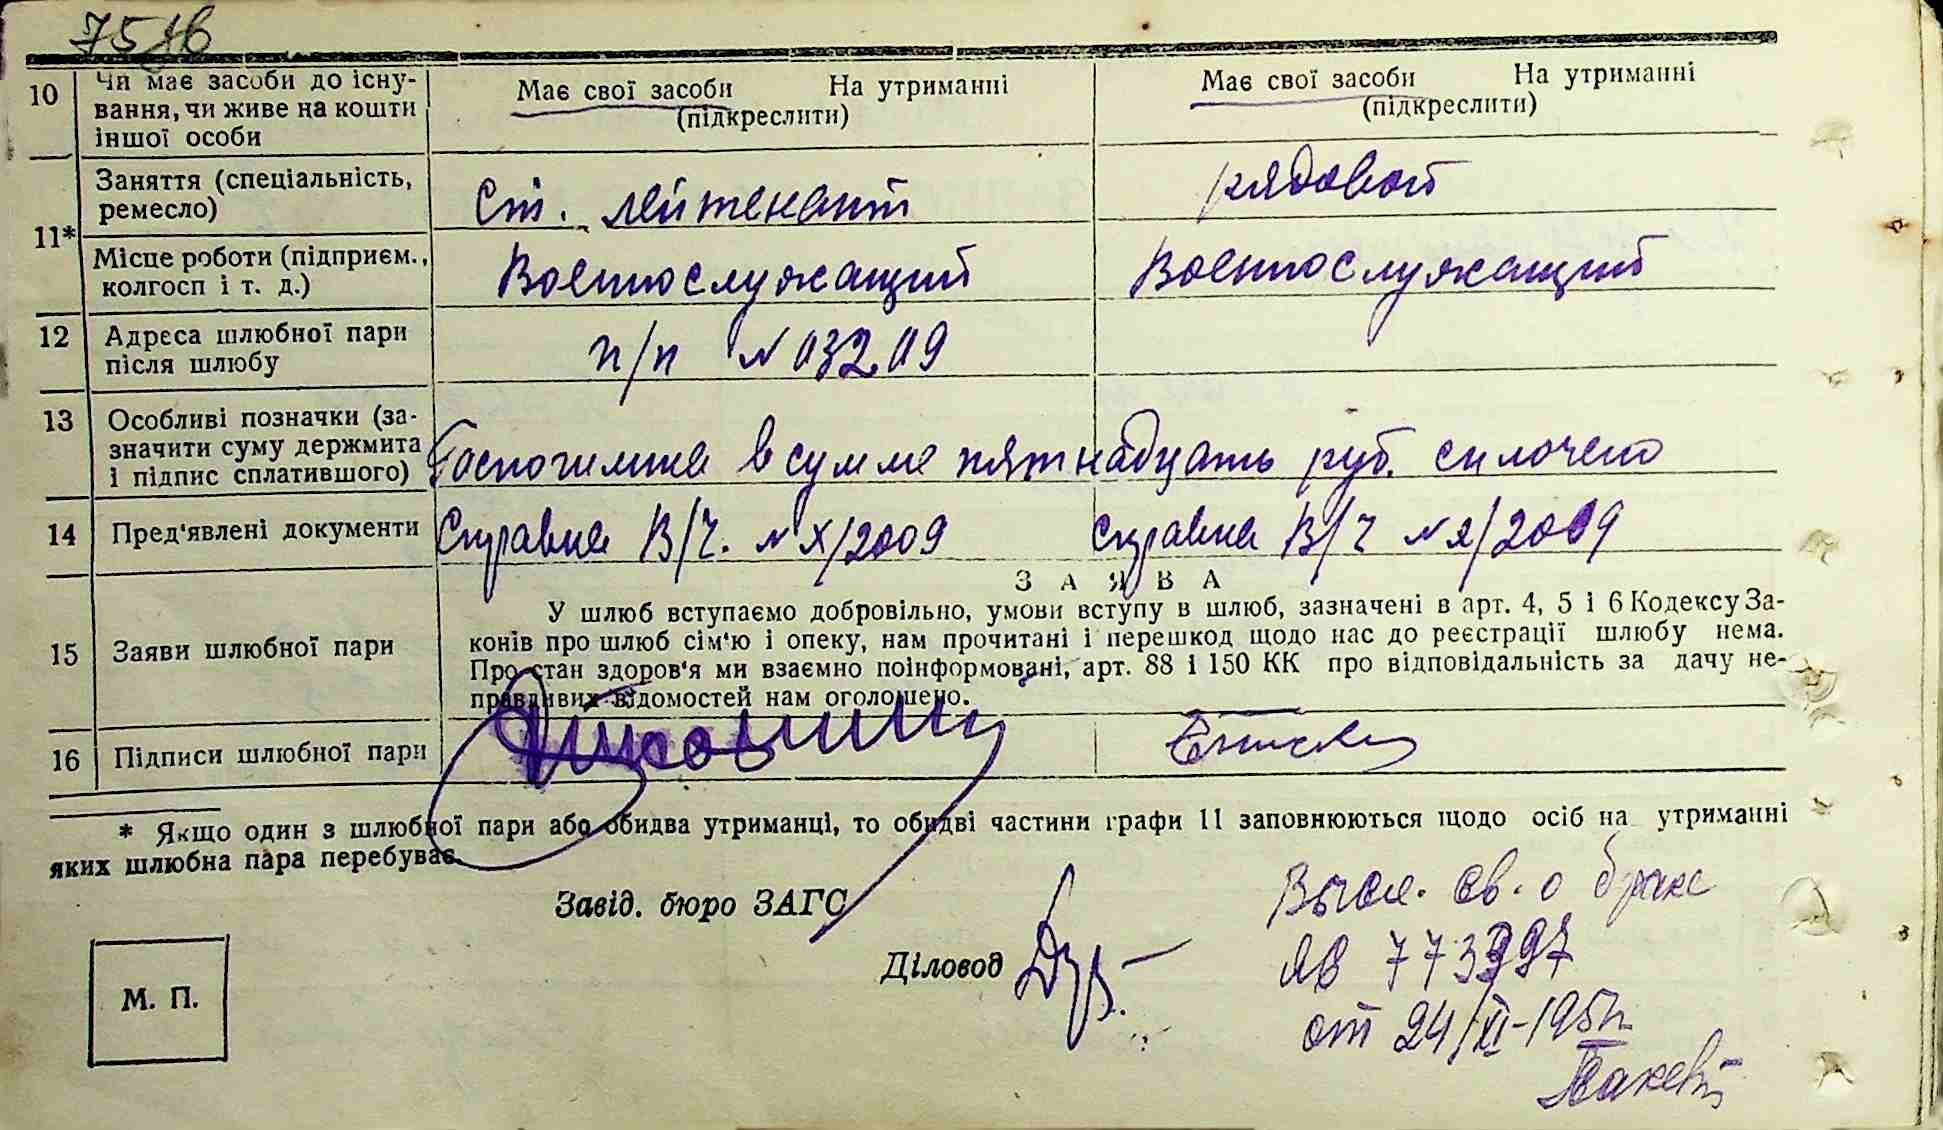 10 Чи має засоби до існу-
вання, чи живе на кошти
іншої особи
Має свої засоби На утриманні
(підкреслити)
Має свої засоби На утриманні
(підкреслити)
11*
Заняття (спеціальність,
ремесло)
Ст. лейтенант
рядовой
Місце роботи (підприєм.,
колгосп і т. д.)
Военнослужащий
Военнослужащий
12 Адреса шлюбної пари
після шлюбу
п/п № 03209
13 Особливі позначки (за-
значити суму держмита
і підпис сплатившого)
Госпошлина в сумме пятнадцать руб. сплочено
14 Пред'явлені документи
Справка В/Ч. № Х/2009
Справка В/Ч № 2/2009
15 Заяви шлюбної пари
ЗАЯВА
У шлюб вступаємо добровільно, умови вступу в шлюб, зазначені в арт. 4, 5 і 6 Кодексу За-
конів про шлюб сім'ю і опеку, нам прочитані і перешкод щодо нас до реєстрації шлюбу нема.
Про стан здоров'я ми взаємно поінформовані, арт. 88 і 150 КК про відповідальність за дачу не-
правдивих відомостей нам оголошено.
16 Підписи шлюбної пари
* Якщо один з шлюбної пари або обидва утриманці, то обидві частини графи 11 заповнюються щодо осіб на утриманні
яких шлюбна пара перебуває.
Завід. бюро ЗАГС
Діловод
М. П.
св. о браке
ЯВ
от 24/XI-195